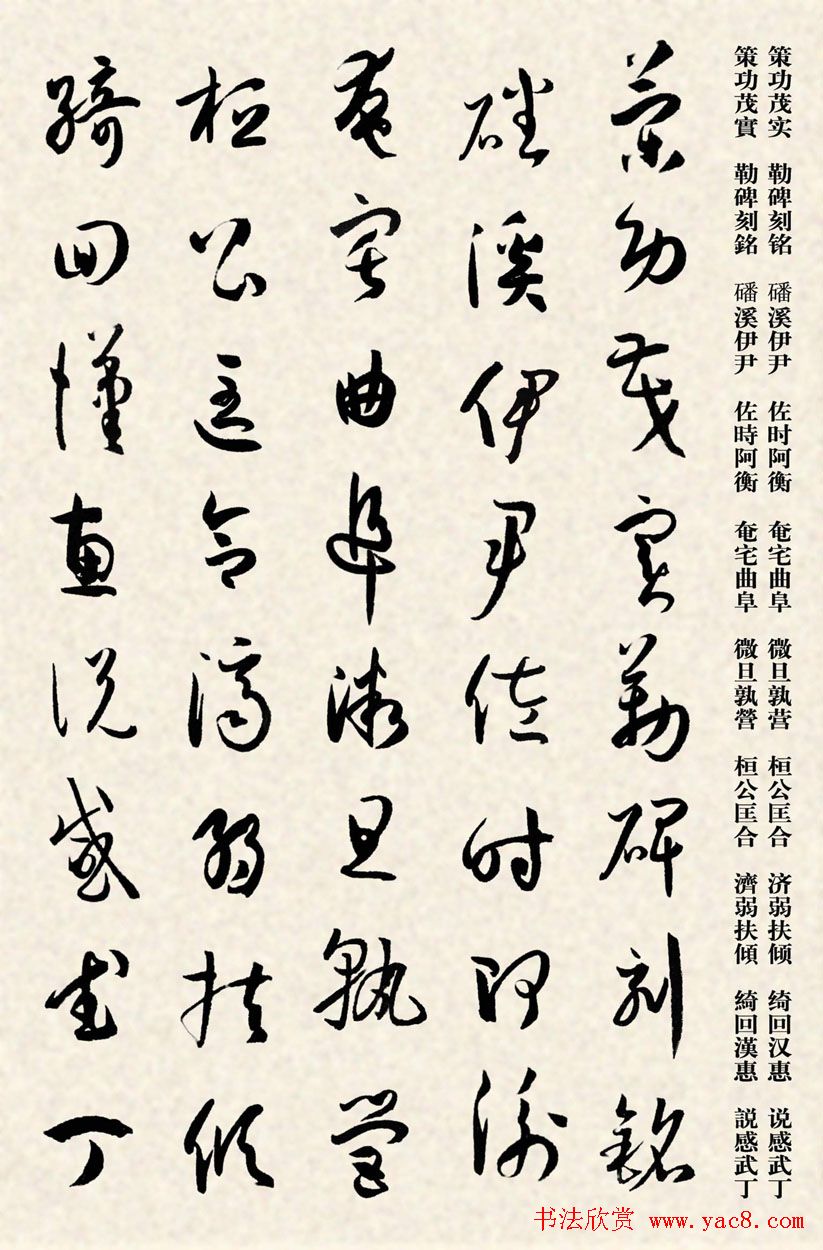 策功茂实 勒碑刻铭 磻溪伊尹 佐时阿衡 奄宅曲阜 微旦孰营 桓公匡合 济弱扶倾 绮回汉惠 说感武丁
策功茂實 勒碑刻銘 磻溪伊尹 佐時阿衡 奄宅曲阜 微旦孰營 桓公匡合 濟弱扶傾 綺回漢惠 説感武丁
策功茂實勒碑刻銘
磻溪伊尹佐時阿衡
奄宅曲阜微旦孰營
桓公匡合濟弱扶傾
綺回漢惠説感武丁
书法欣赏 www.yac8.com